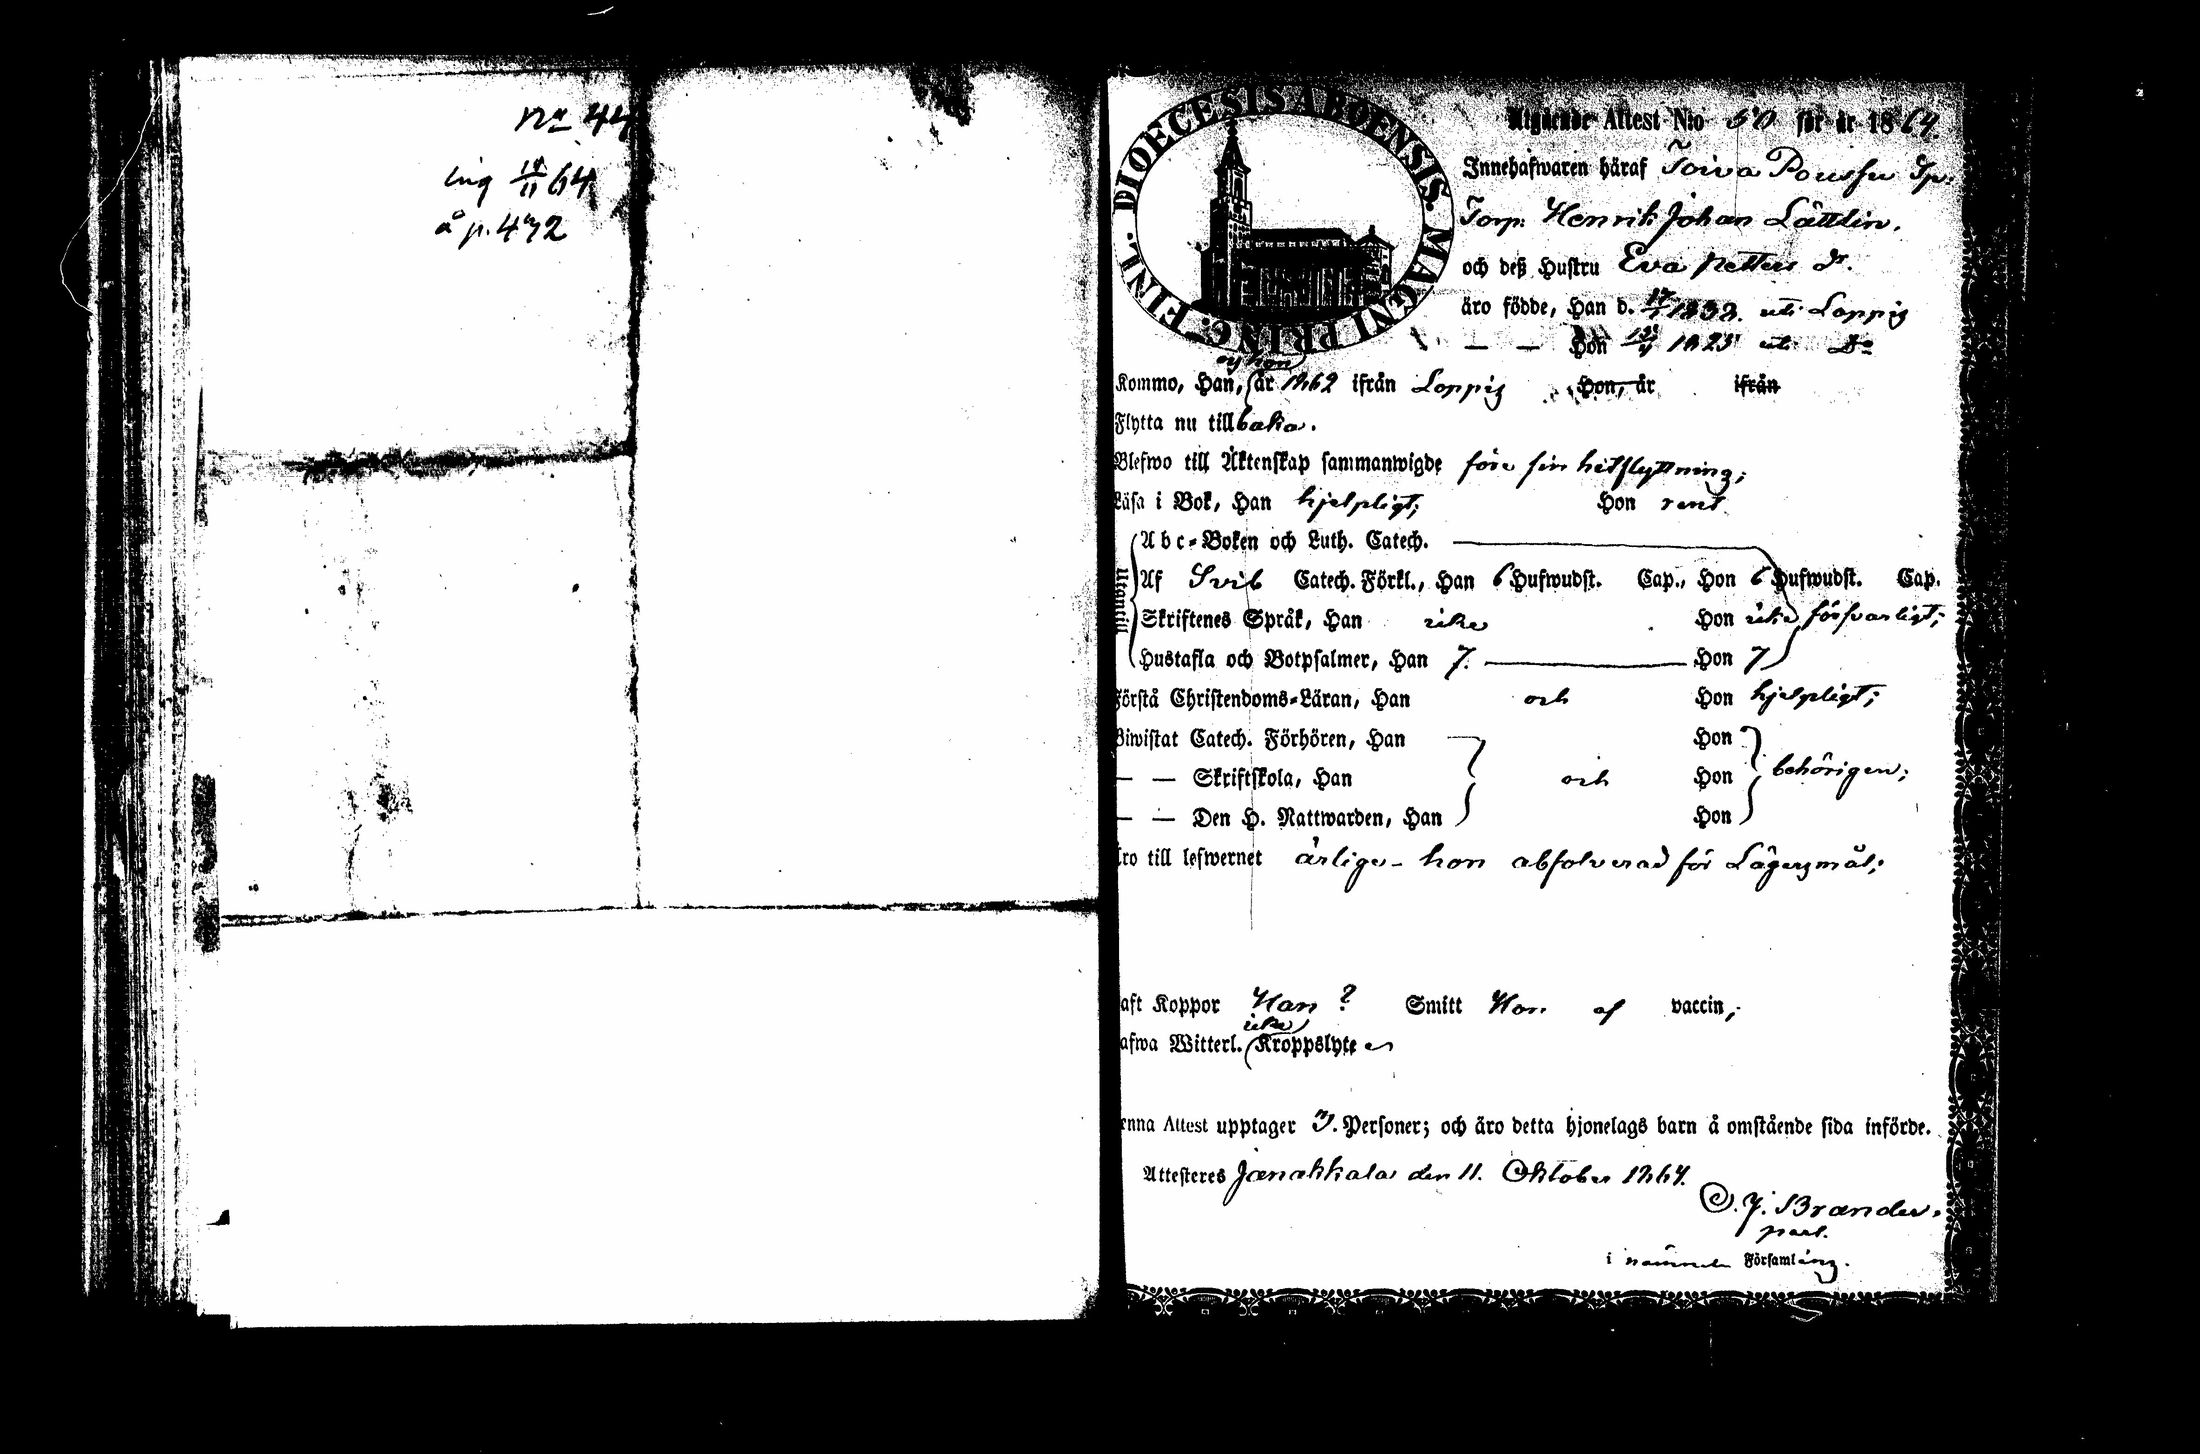 No 44
ing 14/11 64
å p. 472
DIOECESIS ABOENSIS. MAGNI PRINC. FINL.
Utgående Attest N:o 50 för år 1864.
Innehafwaren häraf Toiva Poussu Sp:
Torp: Henrik Johan Lättlin.
och deß Hustru Eva Petters dr.
äro födde, Han d. 17/1 1838. uti Loppis
— — Hon 1823 uti Do
och hon
Kommo, Han, år 1862 ifrån Loppis Hon, år ifrån
Flytta nu tillbaka.
Blefwo till Äktenskap sammanwigde före sin hitflyttning;
Läsa i Bok, Han hjelpligt; Hon rent
Utantill
Abc-Boken och Luth. Catech.
Af Sveb Catech. Förkl., Han 6 Hufwudst. Cap., Hon 6 Hufwudst. Cap.
Skriftenes Språk, Han icke Hon icke försvarligt;
Hustafla och Botpsalmer, Han 7. Hon 7
Förstå Christendoms-Läran, Han och Hon hjelpligt;
Biwistat Catech. Förhören, Han Hon
— — Skriftskola, Han och Hon behörigen;
— — Den H. Nattwarden, Han Hon
Äro till lefwernet ärliga - hon absolverad för Lägersmål;
Haft Koppor Han ? Smitt Hon af vaccin;
icke
Hafwa Witterl. Kroppslyte
Denna Attest upptager 3. Personer; och äro detta hjonelags barn å omstående sida införde.
Attesteres Janakkala den 11. Oktober 1864.
O. J. Brander.
past.
i nämnda Församling.